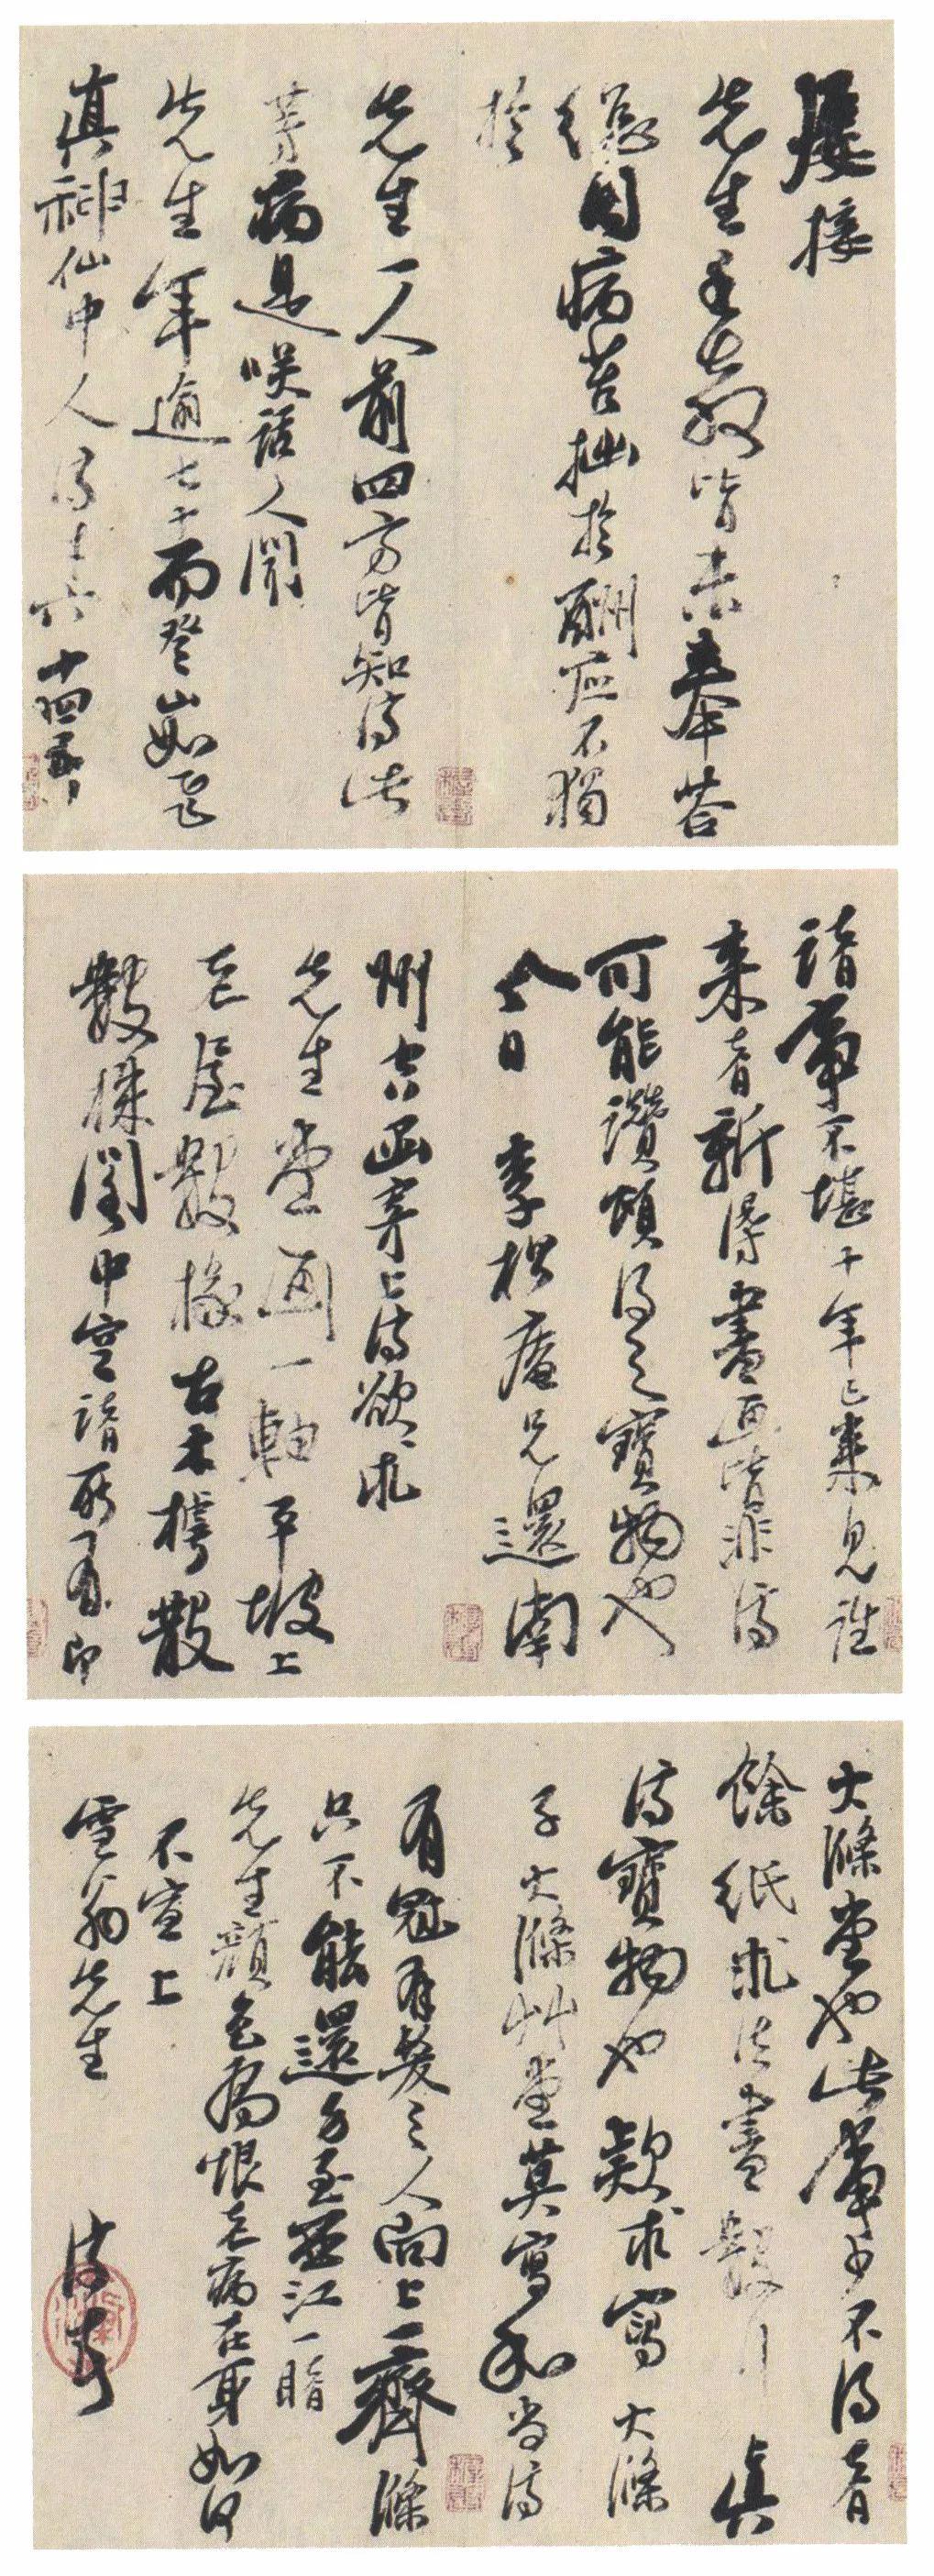 屢接
先生手教皆未奉答
總因病苦拙於酬應不獨
於
先生一人前四方皆知濟此
等病是笑話人聞
先生年逾七十而登山如飛
真神仙中人濟才六十四五
諸事不堪十年已來見往
來者新得書畫皆非濟
可能讚頌得之寶物也
今日李松庵兄還南
州古函寄上濟欲求
先生堂畫一軸平坡上
老屋數椽古木樗散
數株閣中空諸所有即
大滌堂也此事少不得者
餘紙求法書數行 真
濟寶物也款求寫大滌
子大滌草堂莫寫和尚濟
有冠有髮之人向上一齊滌
只不能還身至西江一睹
先生顏色為恨老病在身如何
不宣上
雪翁先生 濟頓首